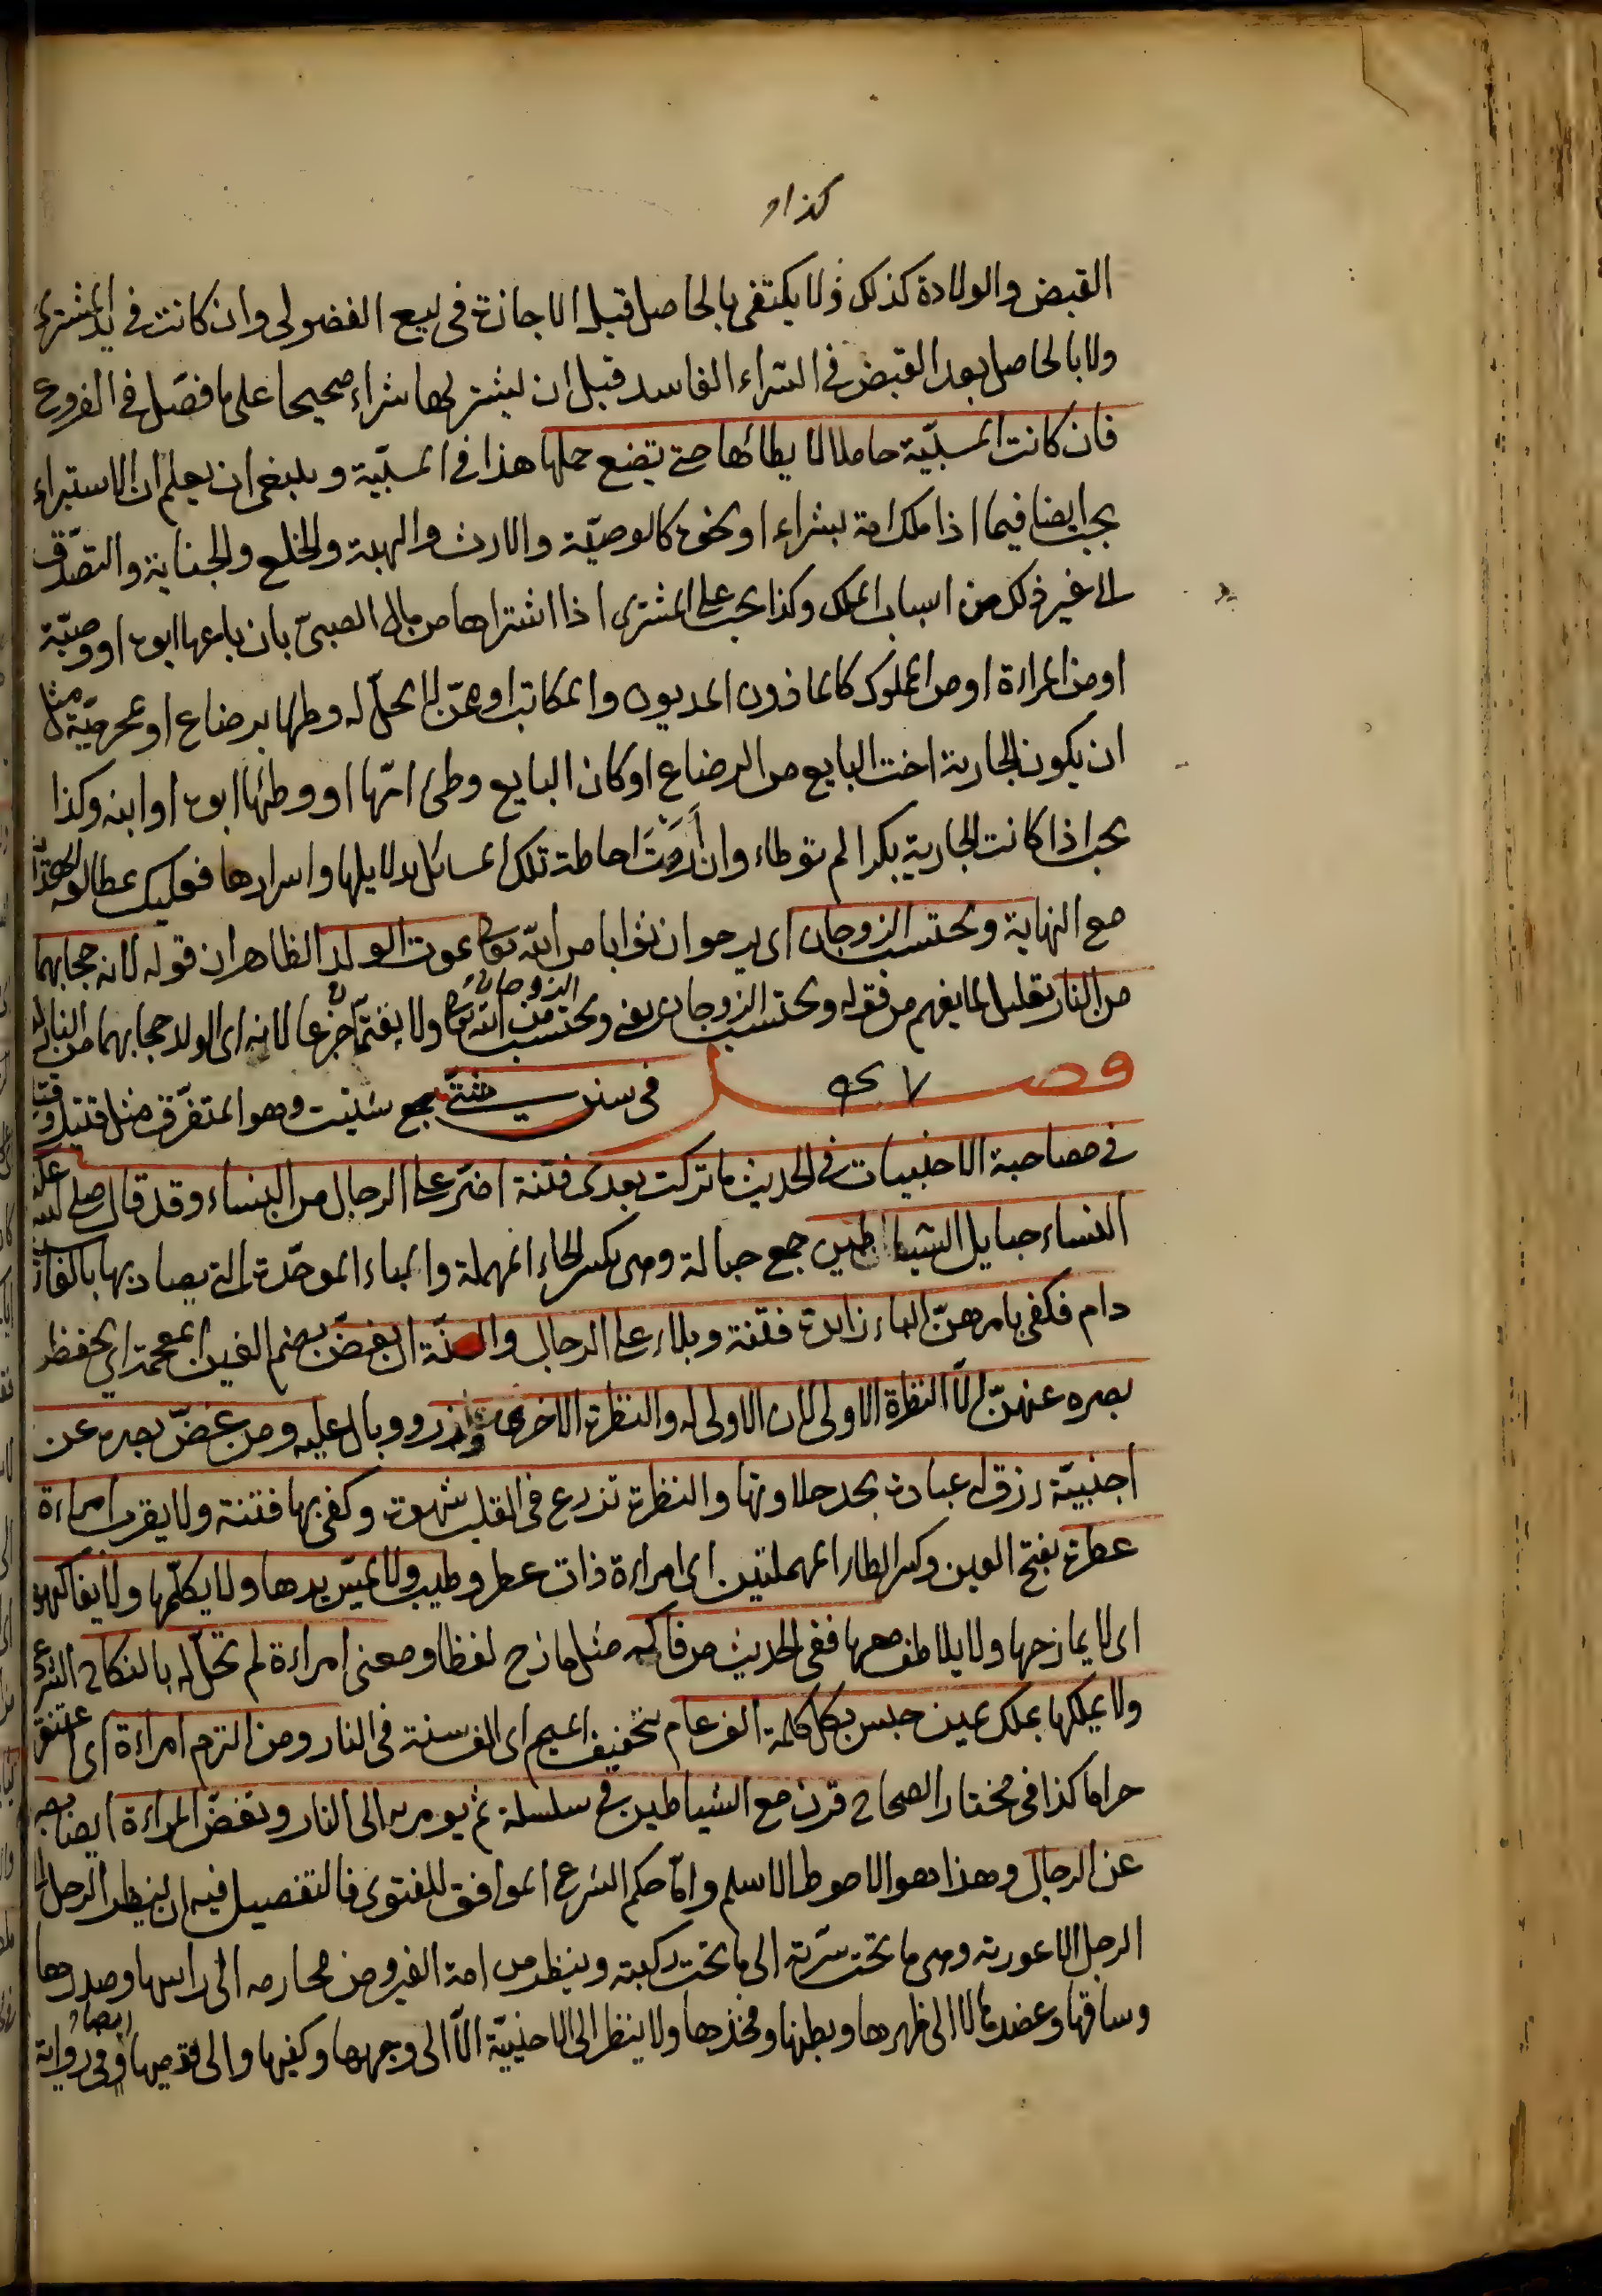 كذا و
القبض والولادة كذلك ولا يكتفى بالحاصل قبل الاجازة فى بيع الفضولى وان كانت فى يد المشترى
ولا بالحاصل بعد القبض فى الشراء الفاسد قبل ان يشتريها شراء صحيحا على ما فصّل فى الفروع
فان كانت المسبيّة حاملا لا يطائها حتى تضع حملها هذا فى المسبيّة وينبغى ان يعلم ان الاستبراء
يجب ايضا فيما اذا ملك امة بشراء او نحوه كالوصيّة والارث والهبة والخلع والجناية والتصدّق
الى غير ذلك من اسباب الملك وكذا يجب على المشترى اذا اشتراها من مال الصبىّ بان باعها ابوه او وصيّه
او من المراءة او من المملوك كالماذون المديون والمكاتب او ممّن لا يحلّ له وطئها برضاع او محرميّة مثل
ان يكون الجارية اخت البايع من الرضاع او كان البايع وطئ امّها او وطئها ابوه او ابنه وكذا
يجب اذا كانت الجارية بكرا لم توطاء وان اَرَدْتَ احاطة تلك المسائل بدلايلها واسرارها فعليك بمطالعة الهداية
مع النهاية ويحتسب الزوجان اى يرجوان ثوابا من الله تعالى بموت الولد الظاهر ان قوله لانه حجابهما
من النار تعليل لما يفهم من قوله ويحتسب الزوجان يعنى ويحتسب الزوجان من الله تعالى ولا يغتمّان جزعا لانه اى الولد حجابهما من النار
فصل فى سنن شتّى جمع شتيت وهو المتفرّق مثل قتيل وقتلى
فى مصاحبة الاجنبيات فى الحديث ما تركت بعدى فتنة اضرّ على الرجال من النساء وقد قال صلى الله عليه
النساء حبايل الشياطين جمع حبالة وهى بكسر الحاء المهملة والباء الموحّدة التى يصاد بها بالفارسية
دام فكفى بامرهنّ الباء زايدة فتنة وبلاء على الرجال والسنّة ان يغضّ بضم الغين المعجمة اى يحفظ
بصره عنهنّ الّا النظرة الاولى لان الاولى له والنظرة الاخرى وزر ووبال عليه ومن غضّ بصره عن
اجنبيّة رزق له عبادة يجد حلاوتها والنظرة تزرع فى القلب شهوة وكفى بها فتنة ولا يقرب امراءة
عطرة بفتح العين وكسر الطاء المهملتين اى امراءة ذات عطر وطيب ولا يمسّ يدها ولا يكلّمها ولا يفاكهها
اى لا يمازحها ولا يلاطف معها ففى الحديث من فاكه مثل مازح لفظا ومعنى امراءة لم تحلّ له بالنكاح الشرعى
ولا يملكها بملك يمين حبس بكل كلمة الف عام بتخفيف الميم اى الف سنة فى النار ومن التزم امراءة اى اعتنق
حراما كذا فى مختار الصحاح قرن مع الشياطين فى سلسلة ثم يومر به الى النار وتغضّ المراءة ايضا بصرها
عن الرجال وهذا هو الاحوط الاسلم وامّا حكم الشرع الموافق للفتوى فالتفصيل فيه ان ينظر الرجل الى
الرجل الا عورته وهى ما تحت سرّته الى ما تحت ركبته وينظر من امة الغير ومن محارمه الى راسها وصدرها
وساقها وعضدها لا الى ظهرها وبطنها وفخذها ولا ينظر الى الاجنبيّة الّا الى وجهها وكفيها والى قدميها ايضا وفى رواية